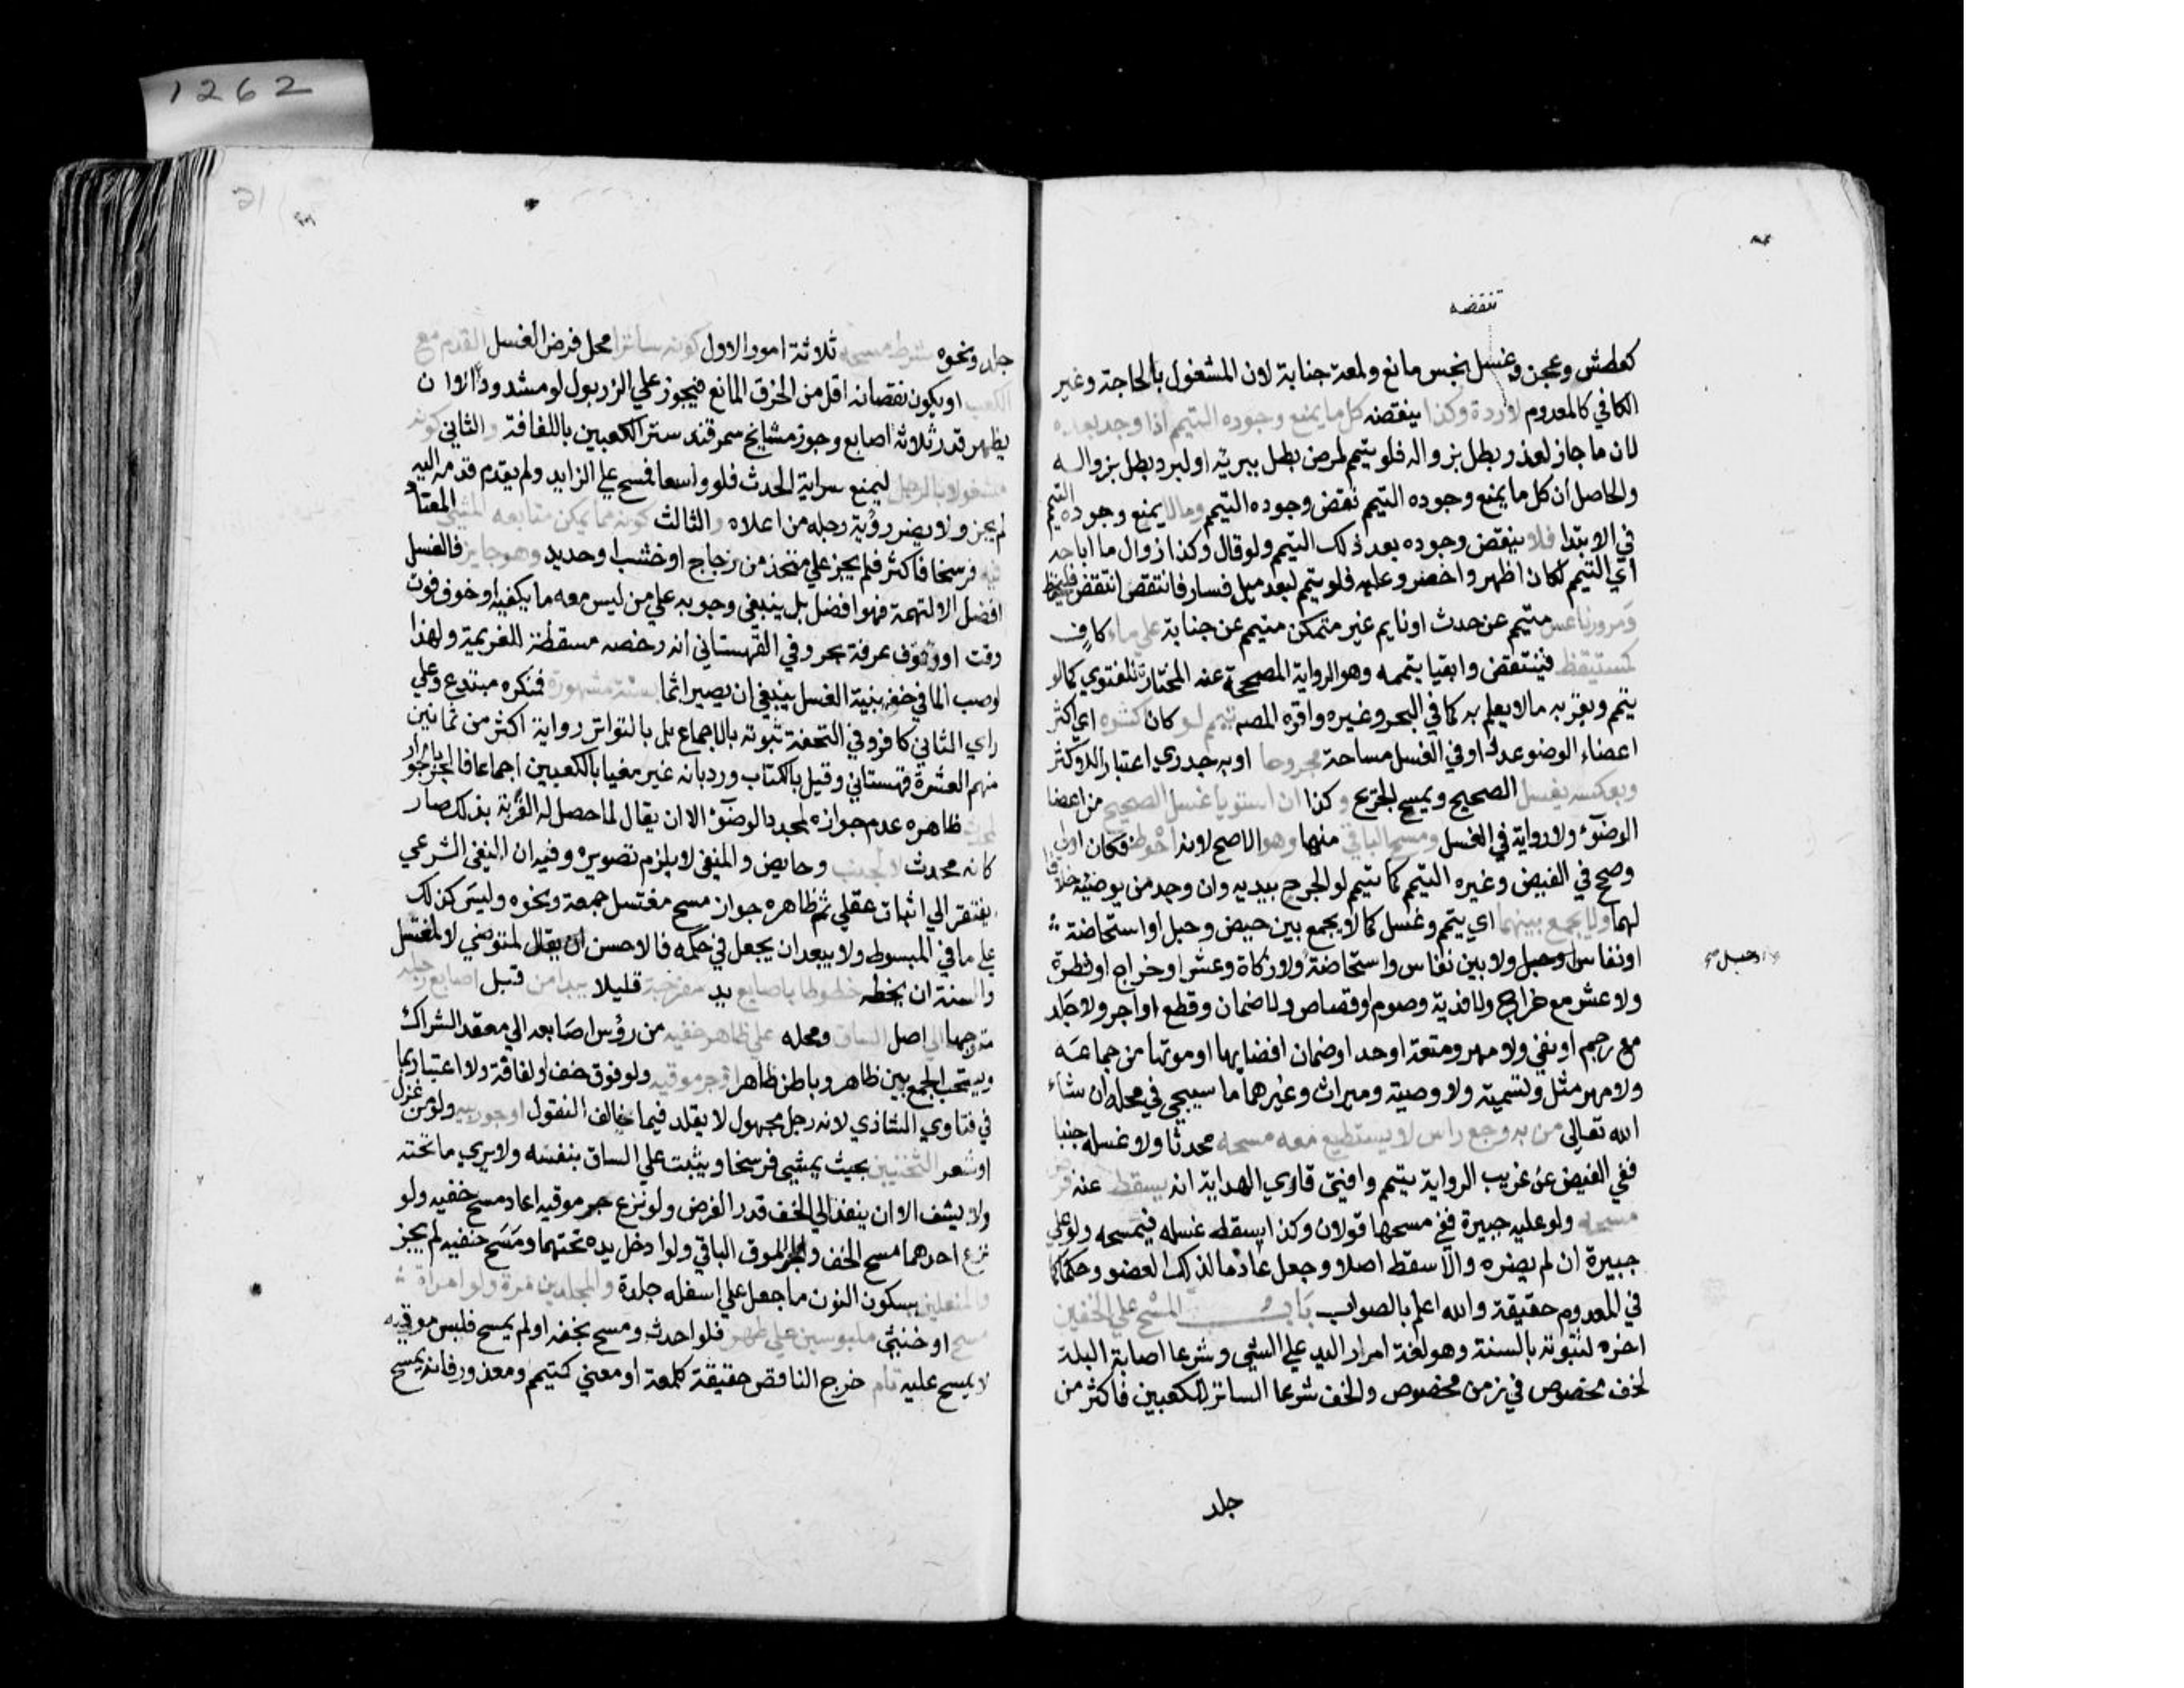 تنقضه
كعطش وعجن وغسل نجس مانع ولمعة جنابة لان المشغول بالحاجة وغير
الكافي كالمعدوم لا ردة وكذا ينقضه كل ما يمنع وجوده التيمم اذا وجد بعده
لان ما جاز لعذر بطل بزواله فلو تيمم لمرض بطل ببرئه او لبرد بطل بزواله
والحاصل ان كل ما يمنع وجوده التيمم نقض وجوده التيمم ومالا يمنع وجوده التيمم
في الابتدا فلا ينقض وجوده بعد ذلك التيمم ولو قال وكذا زوال ما اباحه
اي التيمم لكان اظهر واخصر وعليه فلو تيمم لبعد ميل فسار فانتقص انتقض فليحفظ
ومرور ناعس متيمم عن حدث او نايم غير متمكن متيمم عن جنابة علي ماء كاف
كمستيقظ فينتقض وابقيا تيممه وهو الرواية المصححة عنه المختارة للفتوي كما لو
تيمم وبقربه ما لا يعلم به كما في البحر وغيره واقره المصـ تيمم لو كان اكثره اي اكثر
اعضاء الوضوء عددا وفي الغسل مساحة مجروحا او به جدري اعتبارا للاكثر
وبعكسه يغسل الصحيح ويمسح الجريح وكذا ان استويا غسل الصحيح من اعضا
الوضوء ولا رواية في الغسل ومسح الباقي منها وهو الاصح لانه احوط فكان اولي
وصحح في الفيض وغيره التيمم كما تيمم لو الجرح بيديه وان وجد من يوضيه خلافا
لهما ولا يجمع بينهما اي تيمم وغسل كما لا يجمع بين حيض وحبل او استحاضة
او نفاس او حبل ولا بين نفاس واستحاضة ولا زكاة وعشر او خراج او فطرة
او حبل صح
ولا عشر مع خراج ولا فدية وصوم او قصاص ولا ضمان وقطع او اجر ولا جلد
مع رجم او نفي ولا مهر ومتعة او حد او ضمان افضايها او موتها من جماعه
ولا مهر مثل وتسمية ولا وصية وميراث وغيرهما ما سيجي في محله ان شاء
الله تعالي من به وجع راس لا يستطيع معه مسحه محدثا ولا غسله جنبا
ففي الفيض عن غريب الرواية تيمم وافتي قاري الهداية انه يسقط عنه فرض
مسحه ولو عليه جبيرة ففي مسحها قولان وكذا يسقط غسله فيمسحه ولو علي
جبيرة ان لم يضره والا سقط اصلا وجعل عادما لذلك العضو حكما كما
في المعدوم حقيقة والله اعلم بالصواب باب المسح علي الخفين
اخره لثبوته بالسنة وهو لغة امرار اليد علي الشي وشرعا اصابة البلة
لخف مخصوص في زمن مخصوص والخف شرعا الساتر للكعبين فاكثر من
جلد
1262
جلد ونحوه شرط مسحه ثلاثة امور الاول كونه ساترا محل فرض الغسل القدم مع
الكعب او يكون نقصانه اقل من الخرق المانع فيجوز علي الزربول لو مشدودا الا ان
يظهر قدر ثلاثة اصابع وجوز مشايخ سمرقند ستر الكعبين باللفافة والثاني كونه
مشغولا بالرجل ليمنع سراية الحدث فلو واسعا فمسح علي الزايد ولم يقدم قدمه اليه
لم يجز ولا يضر رؤية رجله من اعلاه والثالث كونه مما يمكن متابعه المشي المعتاد
فيه فرسخا فاكثر فلم يجز علي متخذ من زجاج او خشب او حديد وهو جايز فالغسل
افضل الا لتهمة فهو افضل بل ينبغي وجوبه علي من ليس معه ما يكفيه او خوف فوت
وقت او وقوف عرفة بحر وفي القهستاني انه رخصه مسقطة للعزيمة ولهذا
لو صب الما في خفه بنية الغسل ينبغي ان يصير اثما بسنة مشهورة فمنكره مبتدع وعلي
راي الثاني كافر وفي التحفة ثبوته بالاجماع بل بالتواتر رواية اكثر من ثمانين
منهم العشرة قهستاني وقيل بالكتاب ورد بانه غير مغيا بالكعبين اجماعا فالجر جوار
لمحدث ظاهره عدم جوازه لمجدد الوضوء الا ان يقال لما حصل له القربة بذلك صار
كانه محدث لا لجنب وحايض والمنفي لا يلزم تصويره وفيه ان النفي الشرعي
يفتقر الي اثبات عقلي ثم ظاهره جواز مسح مغتسل جمعة ونحوه وليس كذلك
علي ما في المبسوط ولا يبعد ان يجعل في حكمه فالاحسن ان يقال لمتوضي لا لمغتسل
والسنة ان يخطه خطوطا باصابع يد مفرجة قليلا يبدا من قبل اصابع رجله
متوجها الي اصل الساق ومحله علي ظاهر خفيه من رؤس اصابعه الي معقد الشراك
ويستحب الجمع بين ظاهر وباطن ظاهر او جرموقيه ولو فوق خف او لفافة ولا اعتبار بما
في فتاوي الشاذي لانه رجل مجهول لا يقلد فيما خالف النقول او جوربيه ولو من غزل
او شعر الثخنيين بحيث يمشي فرسخا ويثبت علي الساق بنفسه ولا يري ما تحته
ولا يشف الا ان ينفذ الي الخف قدر الفرض ولو نزع جرموقيه اعاد مسح خفيه ولو
نزع احدهما مسح الخف والجرموق الباقي ولو ادخل يده تحتهما ومسح خفيه لم يجز
والمنعلين بسكون النون ما جعل علي اسفله جلدة والمجلدين مرة ولو امراة
مسح او خنثي ملبوسين علي طهر فلو احدث ومسح بخفه او لم يمسح فلبس موقيه
لا يمسح عليه تام خرج الناقص حقيقة كلمعة او معني كتيمم ومعذور فانه يمسح